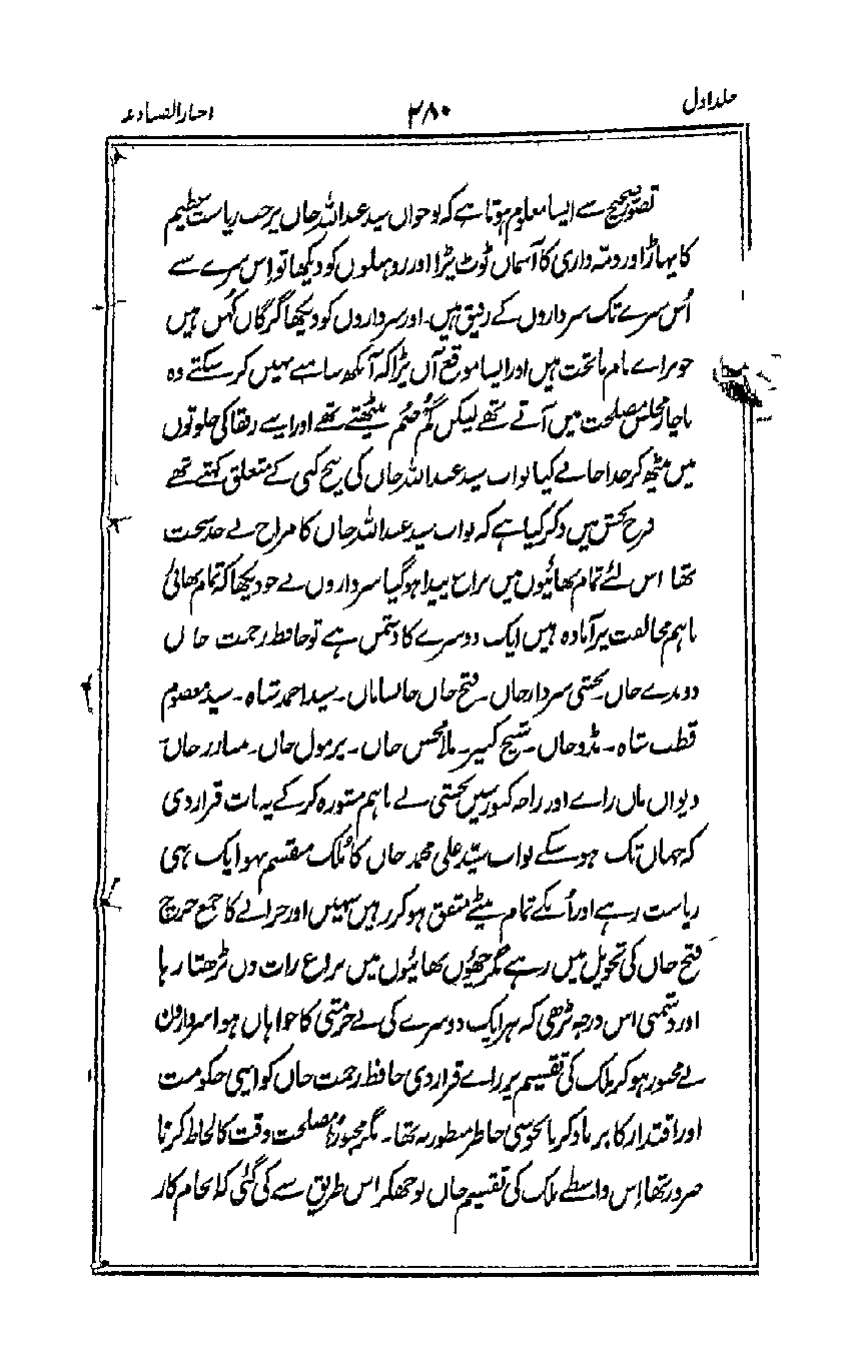 جلد اول ۲۸۰ اخبار الصنادید
تصور صحیح سے ایسا معلوم ہوتا ہے کہ نوجوان سید عبداللہ خاں پر جب ریاست عظیم
کا پہاڑ اور ذمہ داری کا آسمان ٹوٹ پڑا اور روہیلوں کو دیکھا تو اس سرے سے
اُس سرے تک سرداروں کے رفیق ہیں۔ اور سرداروں کو دیکھا گرگان کہن ہیں
جو براے نام ماتحت ہیں اور ایسا موقع آن پڑا کہ آنکھ سامنے نہیں کر سکتے وہ
ناچار مجلس مصلحت میں آتے تھے لیکن گُم صُم بیٹھتے تھے اور اپنے رفقا کی خلوتوں
میں بیٹھ کر خدا جانے کیا نواب سید عبداللہ خاں کی بیخ کنی کے متعلق کہتے تھے
فرح بخش میں ذکر کیا ہے کہ نواب سید عبداللہ خاں کا مزاج بے حد سخت
تھا اس لئے تمام بھائیوں میں نزاع پیدا ہو گیا سرداروں نے جو دیکھا کہ تمام بھائی
باہم مخالفت پر آمادہ ہیں ایک دوسرے کا دشمن ہے تو حافظ رحمت خاں
دوندے خاں۔ بخشی سردار خاں۔ فتح خاں خانساماں۔ سید احمد شاہ۔ سید معصوم
قطب شاہ۔ خاں۔ شیخ کبیر۔ ملا محسن خاں۔ پرمول خاں۔ خاں
دیوان مان راے اور راجہ کنور سین بخشی نے باہم مشورہ کر کے یہ بات قرار دی
کہ جہاں تک ہو سکے نواب سیّد علی محمد خاں کا مُلک منقسم نہو ایک ہی
ریاست رہے اور اُنکے تمام بیٹے متفق ہو کر رہیں سہیں اور خزانے کا جمع خرچ
فتح خاں کی تحویل میں رہے مگر چھیؤں بھائیوں میں نزاع رات دن بڑھتا رہا
اور دشمنی اس درجہ بڑھی کہ ہر ایک دوسرے کی بے حرمتی کا خواہاں ہوا سرداروں
نے مجبور ہو کر ملک کی تقسیم پر راے قرار دی حافظ رحمت خاں کو اپنی حکومت
اور اقتدار کا برباد کرنا بخوشی خاطر منظور نہ تھا۔ مگر مجبوراً مصلحت وقت کا لحاظ کرنا
ضرور تھا اِس واسطے ملک کی تقسیم جان بوجھکر اس طریق سے کی گئی کہ انجام کار